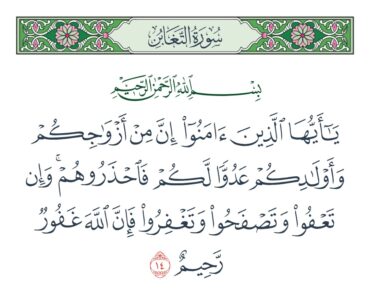 سُورَةُ التَّغَابُنِ
بِسْمِ اللَّهِ الرَّحْمَٰنِ الرَّحِيمِ
يَٰٓأَيُّهَا ٱلَّذِينَ ءَامَنُوٓا۟ إِنَّ مِنْ أَزْوَٰجِكُمْ
وَأَوْلَٰدِكُمْ عَدُوًّا لَّكُمْ فَٱحْذَرُوهُمْ ۚ وَإِن
تَعْفُوا۟ وَتَصْفَحُوا۟ وَتَغْفِرُوا۟ فَإِنَّ ٱللَّهَ غَفُورٌ
رَّحِيمٌ ١٤